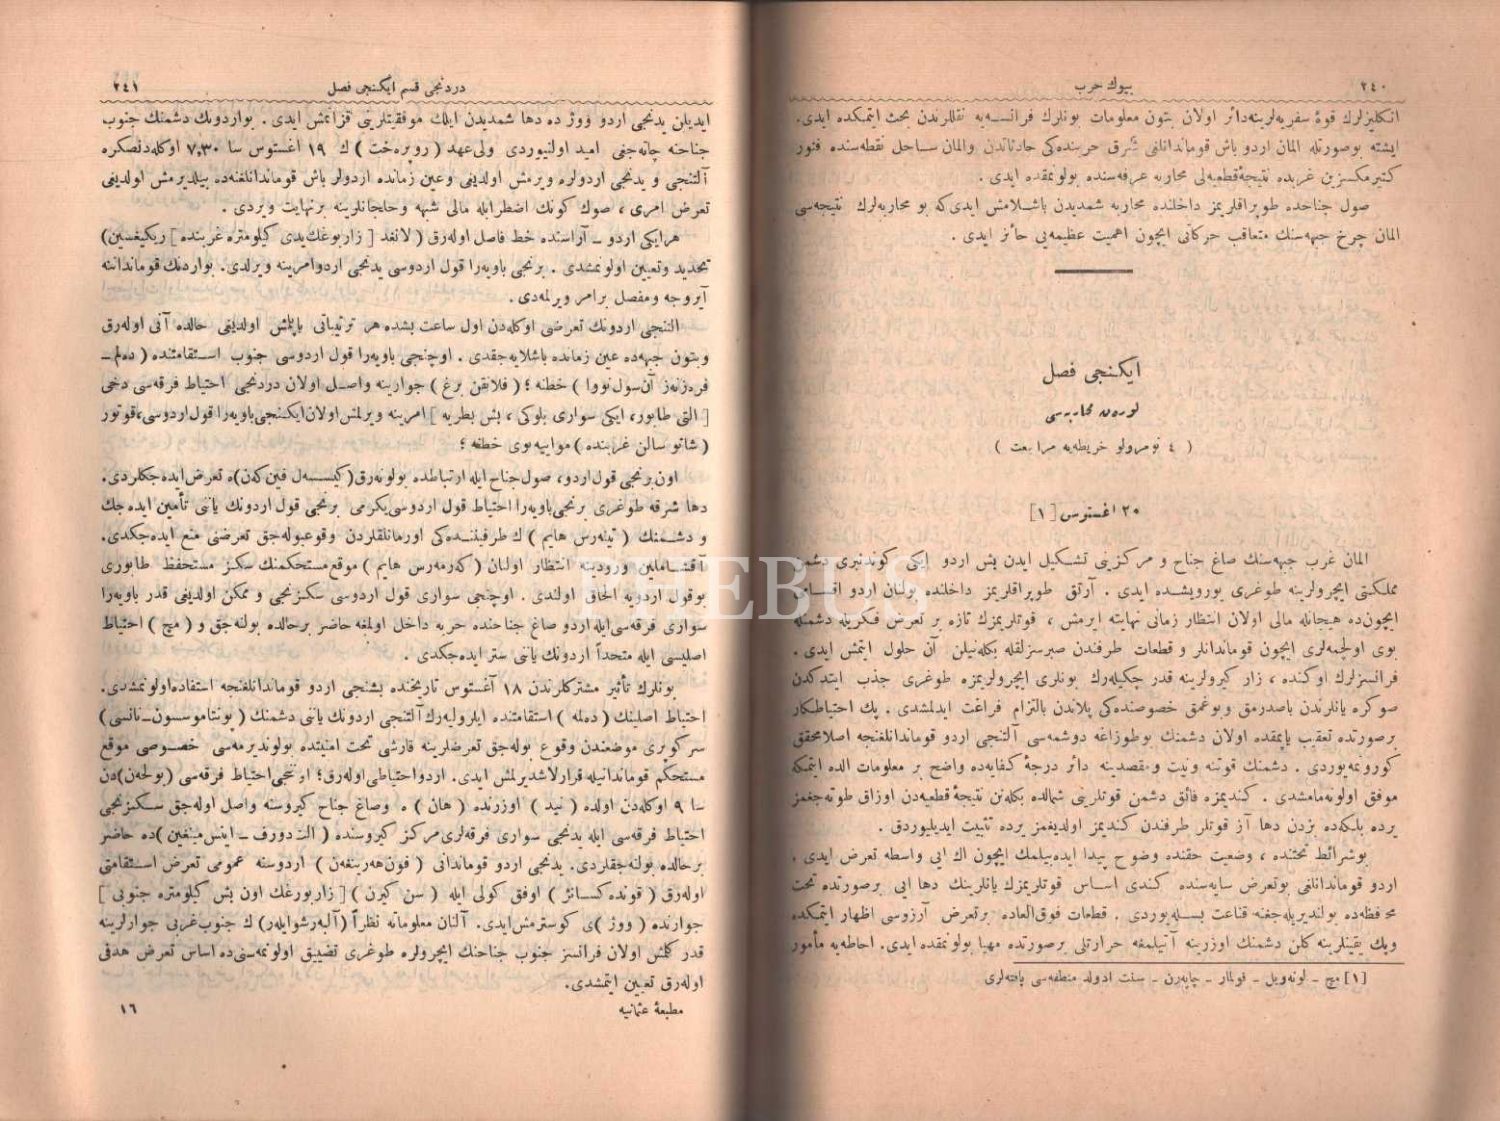 ٢٤٠
بيوك حرب
انكليزلرك قوهٔ سفريه‌لرينه‌دائر اولان بتون معلومات بونلرك فرانسه‌يه نقللرندن بحث ايتمكده ايدى.
ايشته بوصورتله المان اردو باش قوماندانلغى شرق حربنده‌كى حادثاتدن والمان ساحل نقطه‌سنده فتور
كتيرمكسزين غربده نتيجهٔ‌قطعيه‌لى محاربه عرفه‌سنده بولونمقده ايدى .
صول جناحده طوپراقلريمز داخلنده محاربه شمديدن باشلامش ايدى‌كه بو محاربه‌لرك نتيجه‌سى
المان چرخ جبهه‌سنك متعاقب حركاتى ايچون اهميت عظيمه‌يى حائز ايدى .
ايكنجى فصل
لورەن محاربەسى
( ٤ نومرولو خريطه‌يه مراجعت )
٢٠ اغستوس [١]
المان غرب جبهه‌سنك صاغ جناح و مركزينى تشكيل ايدن بش اردو ايكى كوندنبرى دشمن
مملكتى ايچرولرينه طوغرى يورويشده ايدى . آرتق طوپراقلريمز داخلنده بولنان اردو اقسامى
ايچون‌ده هيجانله مالى اولان انتظار زمانى نهايته ايرمش ، قوتلريمزك تازه بر تعرض فكريله دشمنله
بوى اولچمه‌لرى ايچون قوماندانلر و قطعات طرفندن صبرسزلقله بكله‌نيلن آن حلول ايتمش ايدى .
فرانسزلرك اوكنده ، زار كيرولرينه قدر چكيله‌رك بونلرى ايچرولريمزه طوغرى جذب ايتدكدن
صوكره يانلرندن باصدرمق وبوغمق خصوصنده‌كى پلاندن بالتزام فراغت ايدلمشدى . پك احتياطكار
برصورتده تعقيب ياپمقده اولان دشمنك بوطوزاغه دوشمه‌سى آلتنجى اردو قوماندانلغنجه اصلامحقق
كورونمه‌يوردى . دشمنك قوتنه ونيت ومقصدينه دائر درجهٔ كفايه‌ده واضح بر معلومات الده ايتمكه
موفق اولونه‌مامشدى . كنديمزه فائق دشمن قوتلرينى شمالده بكله‌نن نتيجهٔ قطعيه‌دن اوزاق طوته‌جغمز
يرده بلكه‌ده بزدن دها آز قوتلر طرفندن كنديمز اولديغمز يرده تثبيت ايديليوردق .
بوشرائط تحتنده ، وضعيت حقنده وضوح پيدا ايده‌بيلمك ايچون اك ايى واسطه تعرض ايدى .
اردو قوماندانلغى بوتعرض سايه‌سنده كندى اساس قوتلريمزك يانلرينك دها ايى برصورتده تحت
محافظه‌ده بولنديريله‌جغنه قناعت بسله‌يوردى . قطعات فوق‌العاده برتعرض آرزوسى اظهار ايتمكده
وپك يقينلرينه كلن دشمنك اوزرينه آتيلمغه حرارتلى برصورتده مهيا بولونمقده ايدى. احاطه‌يه مأمور
[١] مچ ـ لونه‌ويل ـ فولمار ـ چاپه‌رن ـ سنت ادولد منطقه‌سى پافته‌لرى
دردنجى قسم ايكنجى فصل
٢٤١
ايديلن يدنجى اردو ووژ ده دها شمديدن ايلك موفقيتلرينى قزانمش ايدى . بواردونك دشمنك جنوب
جناحنه چاته‌جغى اميد اولنيوردى ولى‌عهد ( روپره‌خت ) ك ١٩ اغستوس سا ٧,٣٠ اوكله‌دنصكره
آلتنجى و يدنجى اردولره ويرمش اولديغى وعين زمانده اردولر باش قوماندانلغنه‌ده بيلديرمش اولديغى
تعرض امرى ، صوك كونك اضطرابله مالى شبهه وخلجانلرينه برنهايت ويردى .
هرايكى اردو ـ آراسنده خط فاصل اوله‌رق ( لانغد [ زاربورغك‌يدى كيلومتره غربنده ] ريكيغسين)
تحديد وتعيين اولونمشدى . برنجى باويه‌را قول اردوسى يدنجى اردوامرينه ويرلدى. بواردنك قومانداننه
آيروجه ومفصل برامر ويرلمه‌دى .
التنجى اردونك تعرضى اوكله‌دن اول ساعت بشده هر ترتيباتى ياپلمش اولديغى حالده آنى اوله‌رق
وبتون جبهه‌ده عين زمانده باشلايه‌جقدى . اوچنجى باويه‌را قول اردوسى جنوب استقامتنده ( دەلم ـ
فره‌زنه‌ز آن‌سول‌نووا ) خطنه ؛ ( فلانقن برغ ) جوارينه واصل اولان دردنجى احتياط فرقه‌سى دخى
[ التى طابور، ايكى سوارى بلوكى ، بش بطريه ] امرينه ويرلمش‌اولان‌ايكنجى‌باويه‌را قول‌اردوسى،‌قوتور
( شاتو سالن غربنده ) موايه‌نوى خطنه ؛
اون برنجى قول‌اردو، صول‌جناح ايله ارتباطده بولونه‌رق (كيسسه‌ل فين‌كەن)ه تعرض‌ايده‌جكلردى.
دها شرقه طوغرى برنجى‌باويه‌را احتياط قول اردوسى‌يكرمى برنجى قول اردونك يانى تأمين ايده جك
و دشمنك ( تينه‌رس هايم ) ك طرفيننده‌كى اورمانلقلردن وقوعبوله‌جق تعرضنى منع ايده‌جكدى.
آقشاملين ورودينه انتظار اولنان (كه‌رمه‌رس هايم ) موقع‌مستحكمنك سكز مستحفظ طابورى
بوقول اردويه الحاق اولندى . اوچنجى سوارى قول اردوسى سكزنجى و ممكن اولديغى قدر باويه‌را
سوارى فرقه‌سى‌ايله اردو صاغ جناحنده حربه داخل اولمغه حاضر برحالده بولنه‌جق و ( مچ ) احتياط
اصليسى ايله متحداً اردونك يانى ستر ايده‌جكدى .
بونلرك تأثير مشتركلرندن ١٨ آغستوس تاريخنده بشنجى اردو قوماندانلغنجه استفاده‌اولونمشدى.
احتياط اصلينك ( دەلمه ) استقامتنده ايلروليه‌رك آلتنجى اردونك يانى دشمنك ( پونتاموسسون ـ نانسى )
سركوپرى موضعندن وقوع بوله‌جق تعرضلرينه قارشى تحت امنيتده بولونديرمه‌سى خصوصى موقع
مستحكم قوماندانيله قرارلاشديرلمش ايدى. اردواحتياطى اوله‌رق؛ اونجى‌احتياط فرقه‌سى (بولخن)دن
سا ٩ اوكله‌دن اولده ( نيد ) اوزرنده ( هان ) ه وصاغ جناح كيروسنه واصل اوله‌جق سكزنجى
احتياط فرقه‌سى ايله يدنجى سوارى فرقه‌لرى مركز كيروسنده ( التدورف ـ اينس‌مينغين )ده حاضر
برحالده بولنه‌جقلردى. يدنجى اردو قوماندانى ( فون‌هه‌رينغه‌ن ) اردوسنه عمومى تعرض استقامتى
اوله‌رق ( قوندەكسانژ ) اوفق كولى ايله ( سن كيرن ) [ زاربورغك اون بش كيلومتره جنوبى ]
جوارنده ( ووژ )ى كوسترمش‌ايدى. آلنان معلوماته نظراً (آلبه‌رشوايلر) ك جنوب‌غربى جوارلرينه
قدر كلمش اولان فرانسز جنوب جناحنك ايچرولره طوغرى تضييق اولونمه‌سى‌ده اساس تعرض هدفى
اوله‌رق تعيين ايتمشدى.
مطبعهٔ عثمانيه
١٦
PHEBUS